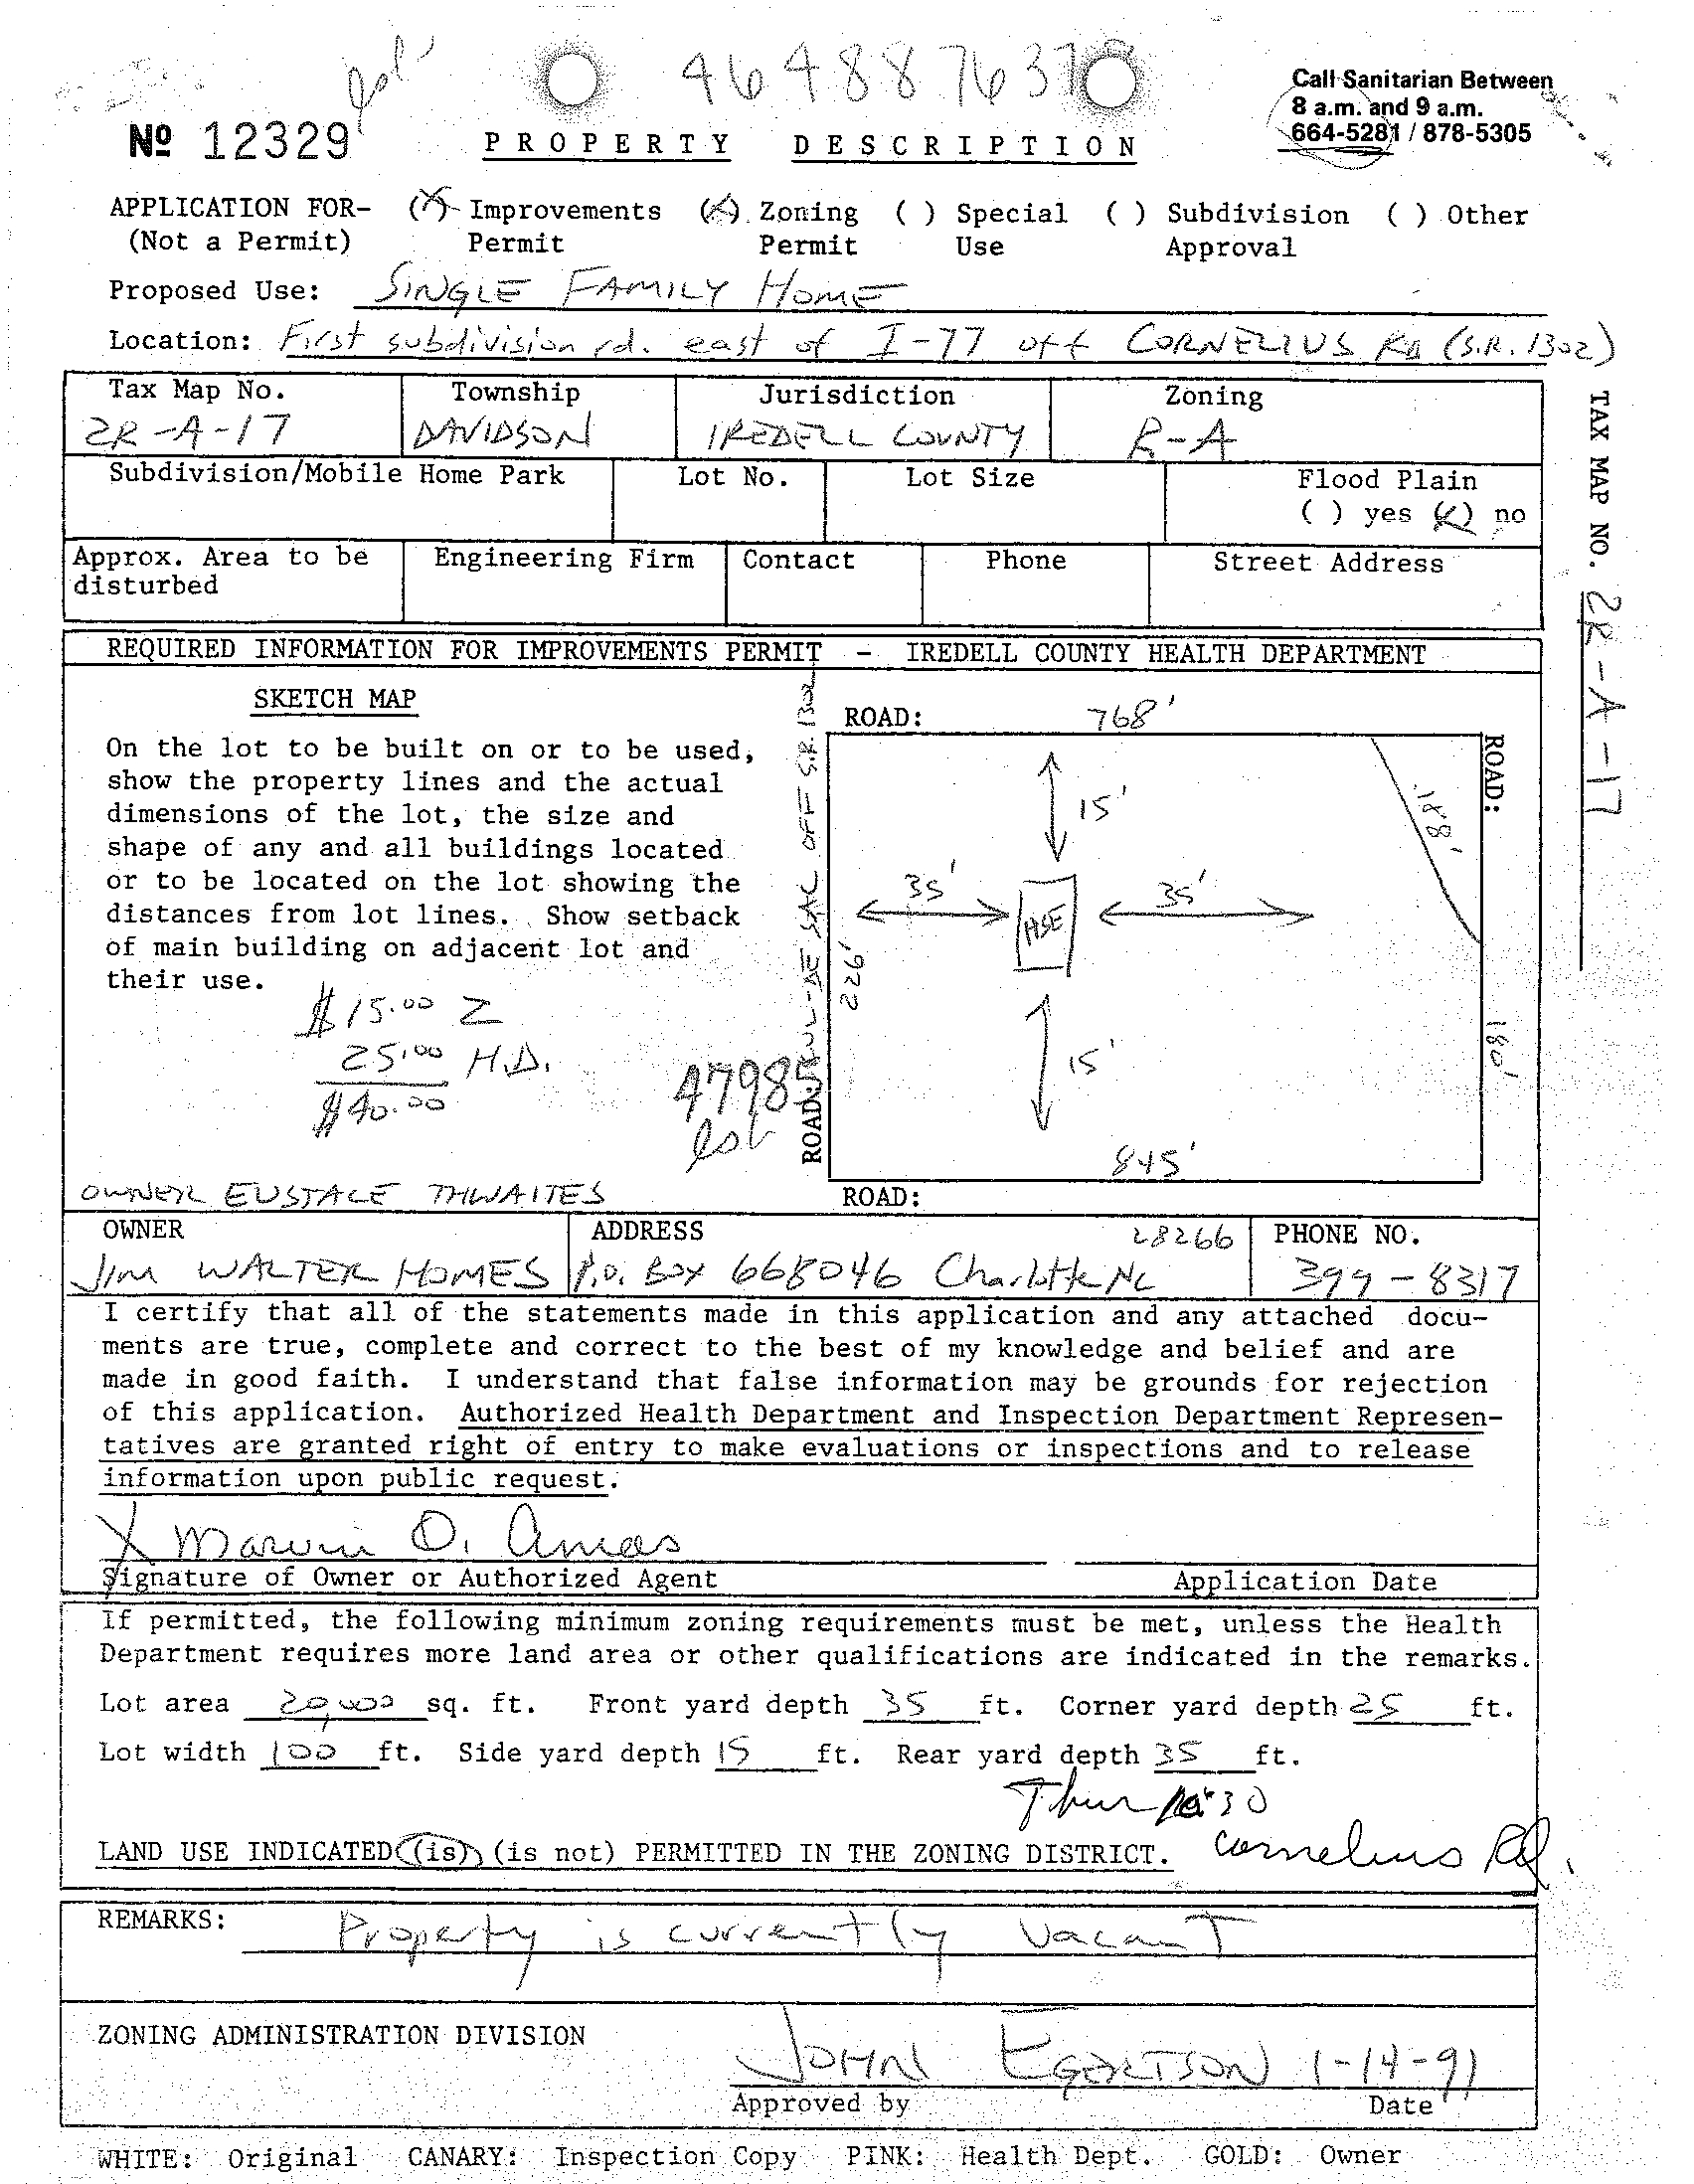 4648876378
Call Sanitarian Between
8 a.m. and 9 a.m.
664-5281 / 878-5305
Nº 12329
PROPERTY DESCRIPTION
APPLICATION FOR- (X) Improvements (X) Zoning ( ) Special ( ) Subdivision ( ) Other
(Not a Permit) Permit Permit Use Approval
Proposed Use: SINGLE FAMILY HOME
Location: First subdivision rd. east of I-77 off CORNELIUS RD (S.R. 1302)
Tax Map No. Township Jurisdiction Zoning
2R-A-17 DAVIDSON IREDELL COUNTY R-A
Subdivision/Mobile Home Park Lot No. Lot Size Flood Plain
( ) yes (X) no
Approx. Area to be Engineering Firm Contact Phone Street Address
disturbed
TAX MAP NO. 2R-A-17
REQUIRED INFORMATION FOR IMPROVEMENTS PERMIT - IREDELL COUNTY HEALTH DEPARTMENT
SKETCH MAP
On the lot to be built on or to be used,
show the property lines and the actual
dimensions of the lot, the size and
shape of any and all buildings located
or to be located on the lot showing the
distances from lot lines. Show setback
of main building on adjacent lot and
their use.
$15.00 Z
25.00 H.D.
$40.00
47985
ROAD: 768'
ROAD:
188'
15'
35' HSE 35'
226'
ROAD: CUL-DE SAC OFF S.R. 1302
180'
15'
845'
ROAD:
OWNER EUSTACE THWAITES
OWNER ADDRESS 28266 PHONE NO.
JIM WALTER HOMES P.O. BOX 668046 Charlotte NC 399-8317
I certify that all of the statements made in this application and any attached docu-
ments are true, complete and correct to the best of my knowledge and belief and are
made in good faith. I understand that false information may be grounds for rejection
of this application. Authorized Health Department and Inspection Department Represen-
tatives are granted right of entry to make evaluations or inspections and to release
information upon public request.
X Marvin O. Amos
Signature of Owner or Authorized Agent Application Date
If permitted, the following minimum zoning requirements must be met, unless the Health
Department requires more land area or other qualifications are indicated in the remarks.
Lot area 20,000 sq. ft. Front yard depth 35 ft. Corner yard depth 25 ft.
Lot width 100 ft. Side yard depth 15 ft. Rear yard depth 35 ft.
Thur
LAND USE INDICATED (is) (is not) PERMITTED IN THE ZONING DISTRICT. Cornelius Rd.
REMARKS: Property is currently vacant
ZONING ADMINISTRATION DIVISION
JOHN EGERTSON 1-14-91
Approved by Date
WHITE: Original CANARY: Inspection Copy PINK: Health Dept. GOLD: Owner